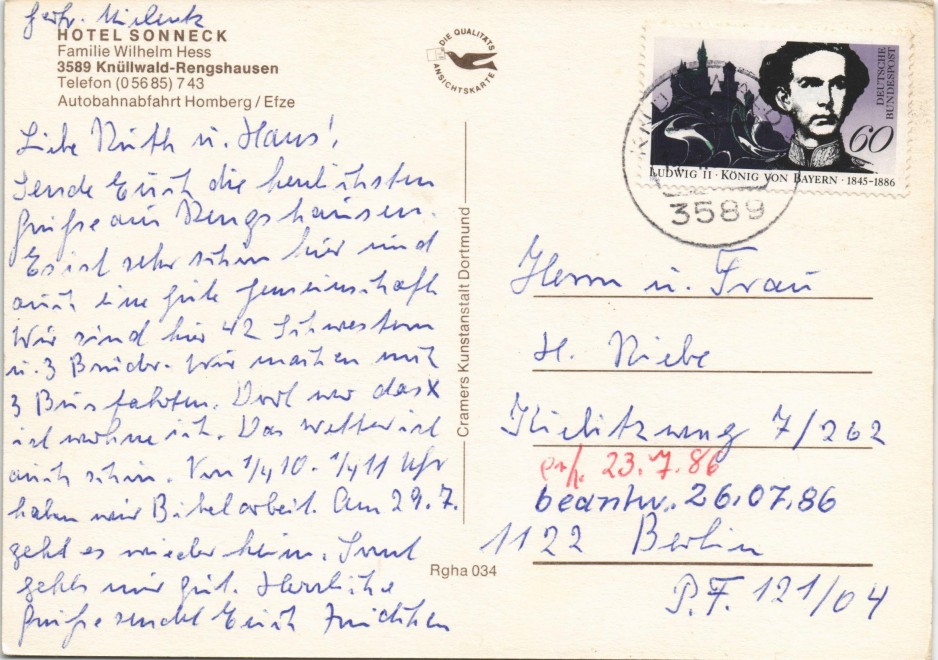 HOTEL SONNECK
Familie Wilhelm Hess
3589 Knüllwald-Rengshausen
Telefon (05685) 743
Autobahnabfahrt Homberg / Efze
DIE QUALITÄTS
ANSICHTSKARTE
DEUTSCHE
BUNDESPOST
60
LUDWIG II · KÖNIG VON BAYERN · 1845-1886
3589
Liebe Ruth u. Hans!
Sende Euch die herzlichsten
Grüße aus Rengshausen.
Es ist sehr schön hier und
auch eine gute Gemeinschaft
Wir sind hier 42 Schwestern
u. 3 Brüder. Wir machen mit
3 Busfahrten. Dort wo das X
ist wohne ich. Das Wetter ist
auch schön. Von 1/4 10 - 1/4 11 Uhr
haben wir Bibelarbeit. Am 29.7.
geht es wieder heim. Sonst
gehts mir gut. Herzliche
Grüße sendet Euch Friedchen
Cramers Kunstanstalt Dortmund
Rgha 034
Herrn u. Frau
H. Niebe
7/262
erh. 23.7.86
beantw. 26.07.86
1122 Berlin
P.F. 121/04